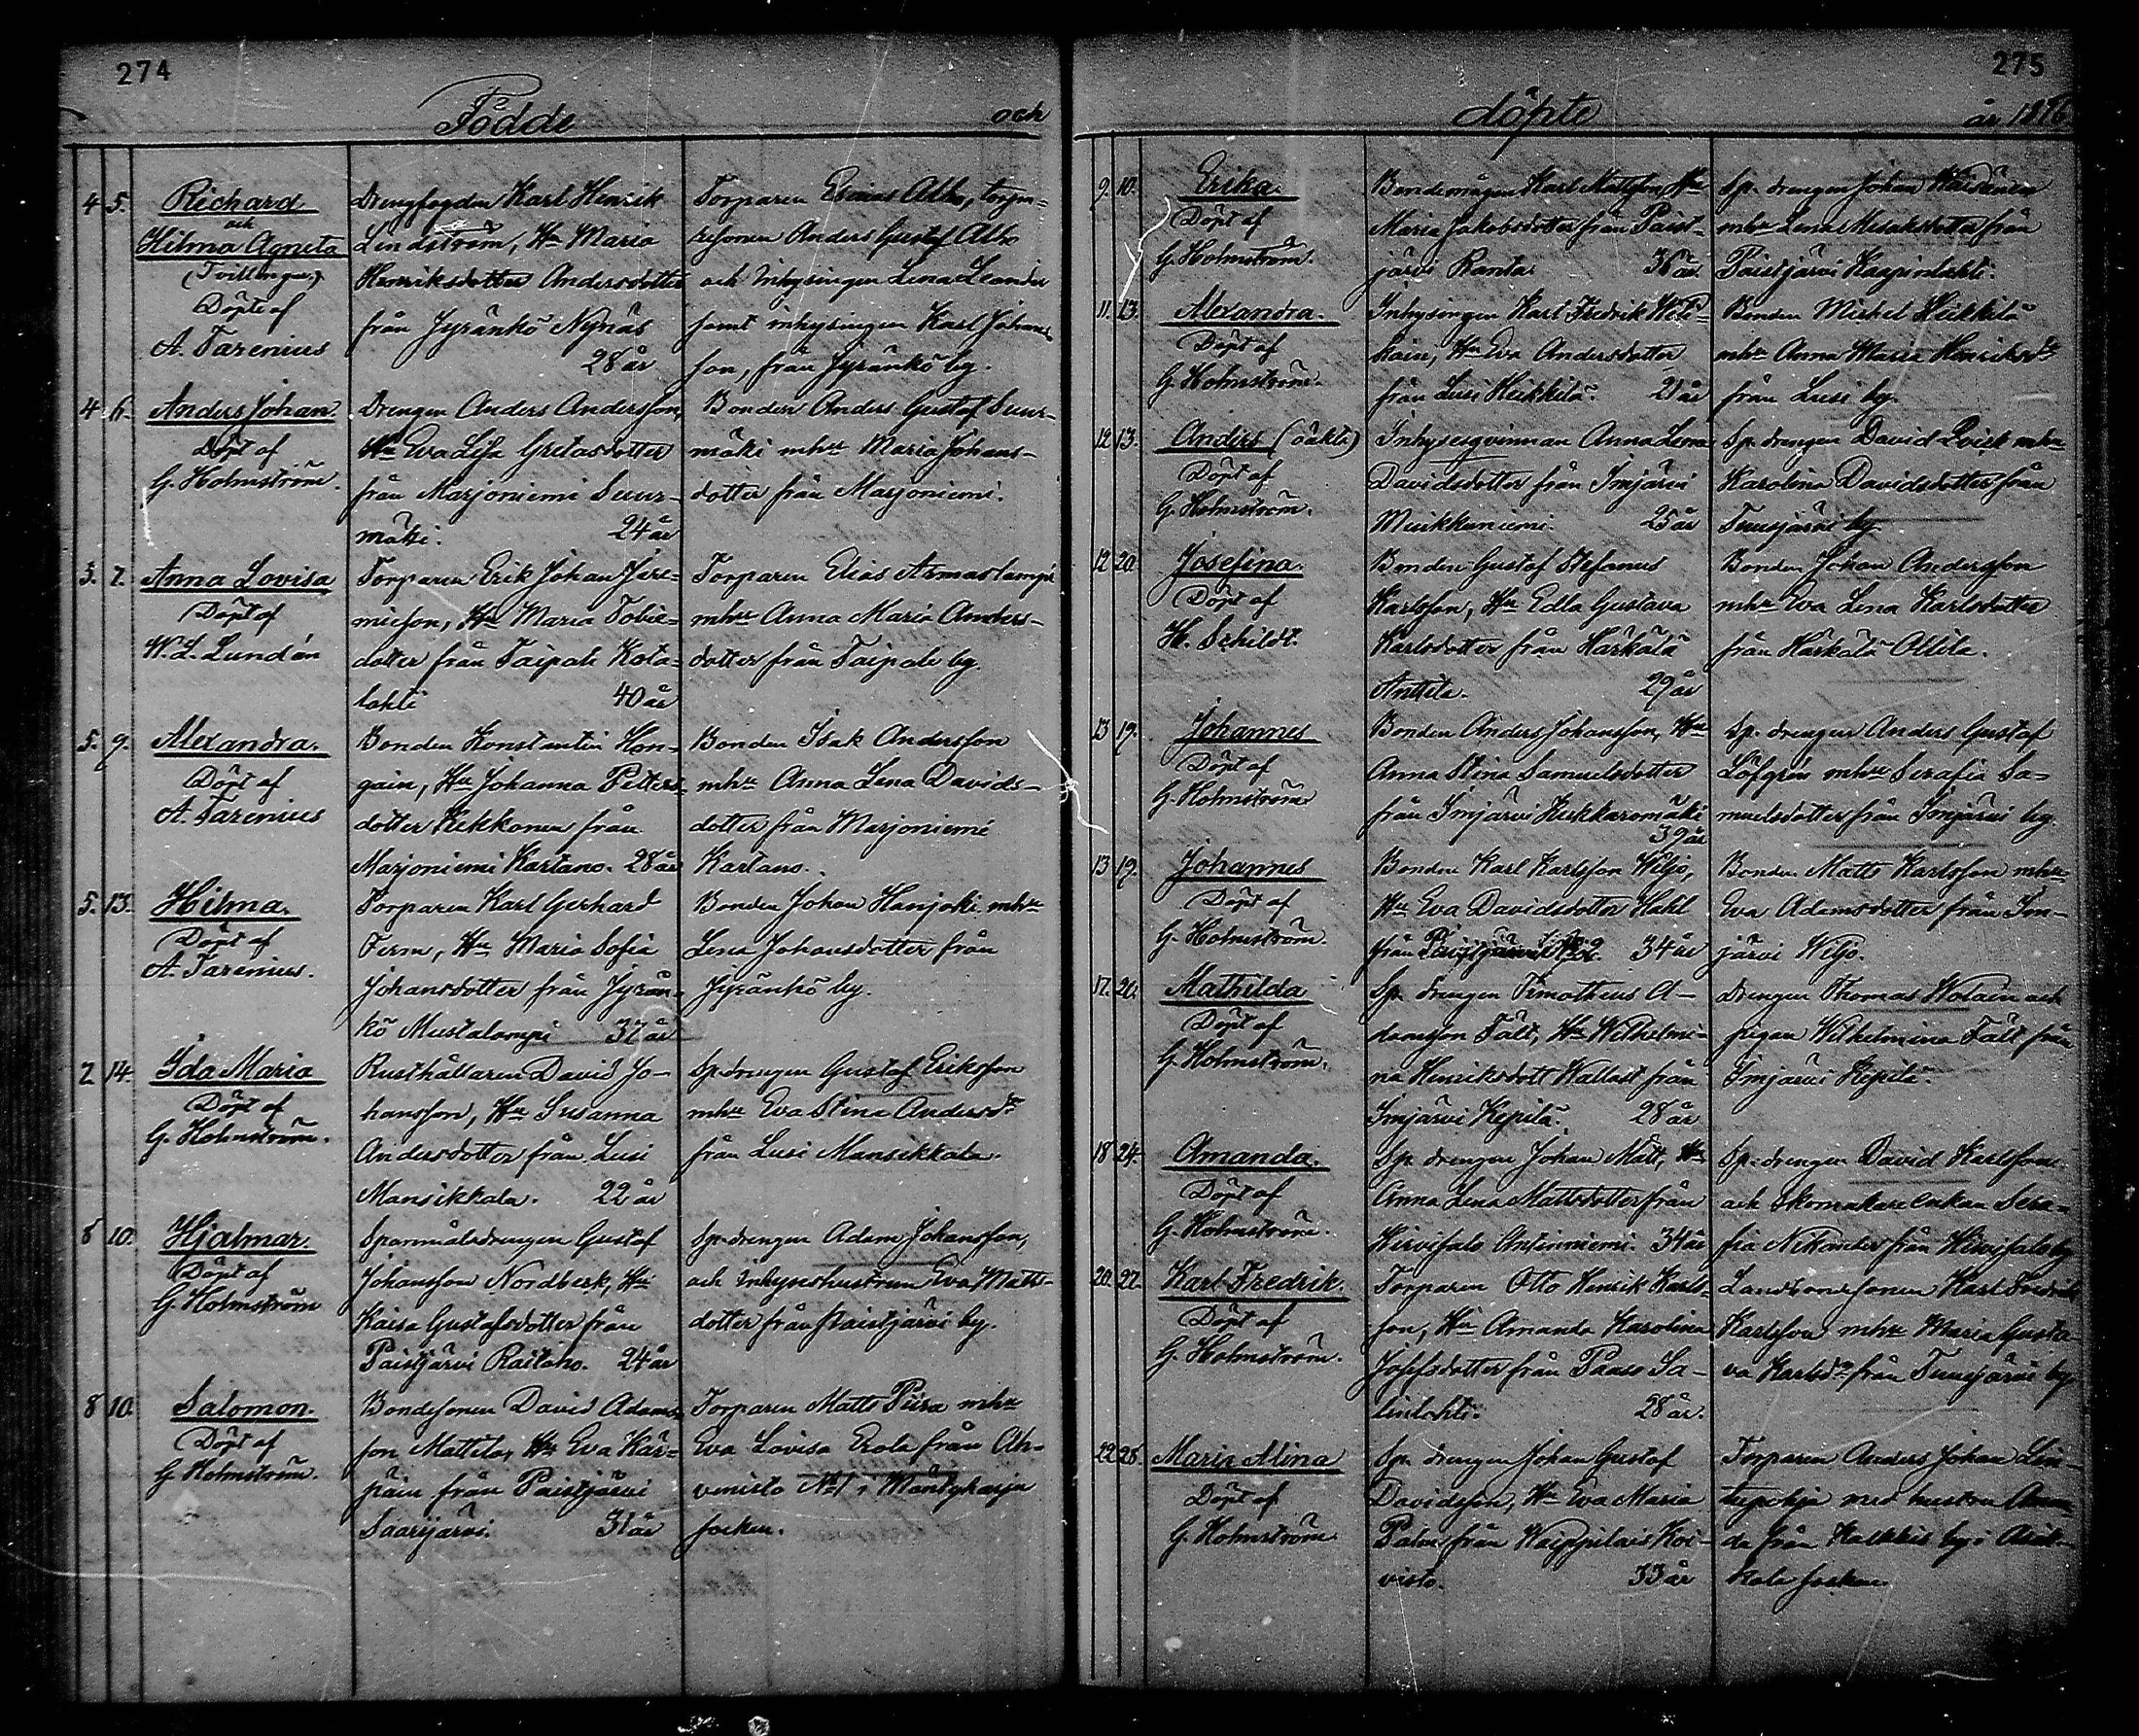 274
Födde och
4 5. Richard
och
Hilma Agneta
(Tvillingar)
Döpte af
A. Tarenius
Drengfogden Karl Henrik
Lindström, Hu Maria
Henriksdotter Andersdotter
från Jyränkö Nynäs
28 år
Torparen Esaias Alho, torpa-
resonen Anders Gustaf Alho
och inhysingen Lena Leander
samt inhysingen Karl Johans-
son, från Jyränkö by.
4 6. Anders Johan.
Döpt af
G. Holmström.
Drengen Anders Andersson,
Hu Eva Lisa Gretasdotter
från Marjoniemi Suur-
mäki. 24 år
Bonden Anders Gustaf Suur-
mäki mhu Maria Johans-
dotter från Marjoniemi.
5. 7. Anna Lovisa
Döpt af
W. L. Lundén
Torparen Erik Johan Jere-
miesson, Hu Maria Tobie-
dotter från Taipale Kota-
lahti 40 år
Torparen Elias Armaslampi
mhu Anna Maria Anders-
dotter från Taipale by.
5. 9. Alexandra.
Döpt af
A. Tarenius
Bonden Konstantin Hon-
gain, Hu Johanna Petters-
dotter Kekkonen från
Marjoniemi Kartano. 28 år
Bonden Isak Andersson
mhu Anna Lena Davids-
dotter från Marjoniemi
Kartano.
5. 13. Hilma.
Döpt af
A. Tarenius.
Torparen Karl Gerhard
Ferm, Hu Maria Sofia
Johansdotter från Jyrän-
kö Mustalampi 37 år
Bonden Johan Hanjoki mhu
Lena Johansdotter från
Jyränkö by.
2 14. Ida Maria
Döpt af
G. Holmström.
Rusthållaren David Jo-
hansson, Hu Susanna
Andersdotter från Lusi
Mansikkala. 22 år
Sp. drengen Gustaf Eriksson
mhu Eva Stina Andersdr
från Lusi Mansikkala.
8 10. Hjalmar.
Döpt af
G. Holmström
Spannmålsdrengen Gustaf
Johansson Nordberk, Hu
Kaisa Gustafsdotter från
Paistjärvi Raitaho. 24 år
Sp. drengen Adam Johansson,
och inhyseshustrun Eva Matts-
dotter från Paistjärvi by.
8 10. Salomon.
Döpt af
G. Holmström.
Bondesonen David Adams-
son Mattila, Hu Eva Kär-
päin från Paistjärvi
Saarijärvi. 31 år
Torparen Matts Piira mhu
Eva Lovisa Erola från Ah-
venisto No 1 i Mäntyharju
socken.
275
döpte år 1876
9. 10. Erika.
Döpt af
G. Holmström.
Bondemågen Karl Mattsson, Hu
Maria Jakobsdotter från Paist-
järvi Ranta. 36 år
Sp. drengen Johan
mhu Lena Misaksdotter från
Paistjärvi Kaspinlahti.
11. 13. Alexandra.
Döpt af
G. Holmström.
Inhysingen Karl Fredrik
Hu Eva Andersdotter
från Lusi Heikkilä. 21 år
Bonden Mickel Heikkilä
mhu Anna Maria Henriksdr
från Lusi by.
12 13. Anders (oäkta)
Döpt af
G. Holmström.
Inhysesqvinnan Anna Lena
Davidsdotter från Imjärvi
Muikkuniemi. 25 år
Sp. drengen David Qvick mhu
Karolina Davidsdotter från
Tuusjärvi by
12 20. Josefina.
Döpt af
H. Schildt.
Bonden Gustaf Stefanus
Karlsson, Hu Edla Gustava
Karlsdotter från Härkälä
Anttila. 29 år
Bonden Johan Andersson
mhu Eva Lena Karlsdotter
från Härkälä Ollila.
13 19. Johannes
Döpt af
G. Holmström
Bonden Anders Johansson, Hu
Anna Stina Samuelsdotter
från Imjärvi Kukkaromäki
39 år
Sp. drengen Anders Gustaf
Löfgrén mhu Serafia Sa-
muelsdotter från Imjärvi by.
13 19. Johannes
Döpt af
G. Holmström.
Bonden Karl Karlsson Weljo,
Hu Eva Davidsdotter Hahl
från 34 år
Bonden Matts Karlsson mhu
Eva Adamsdotter från Im-
järvi Weljo.
17. 20. Mathilda
Döpt af
G. Holmström.
Sp. drengen Timotheus A-
damsson Fält, Hu Wilhelmi-
na Henriksdott Wallast från
Imjärvi Kepilä. 28 år
Drengen Thomas Holain och
pigan Wilhelmina Fält från
Imjärvi Kepilä.
18 24. Amanda.
Döpt af
G. Holmström.
Sp. drengen Johan Mått, Hu
Anna Lena Mattsdotter från
Hirvisalo Antinniemi. 34 år
Sp. drengen David Karlsson
och skomakareenkan Sera-
fia Nikander från Hirvisalo by
20. 27. Karl Fredrik.
Döpt af
G. Holmström.
Torparen Otto Henrik Karls-
son, Hu Amanda Karolina
Josefsdotter från Paaso Sa-
linlahti. 28 år.
Landbondesonen Karl Fredrik
Karlsson mhu Maria Gusta-
va Karlsdr från Tuusjärvi by
22 28. Maria Alina
Döpt af
G. Holmström
Sp. drengen Johan Gustaf
Davidsson, Hu Eva Maria
Palm från Waippilais Koi-
visto. 33 år
Torparen Anders Johan Lin-
tupohja med hustru Aman-
da från Kalkkis by i Asik-
kala socken